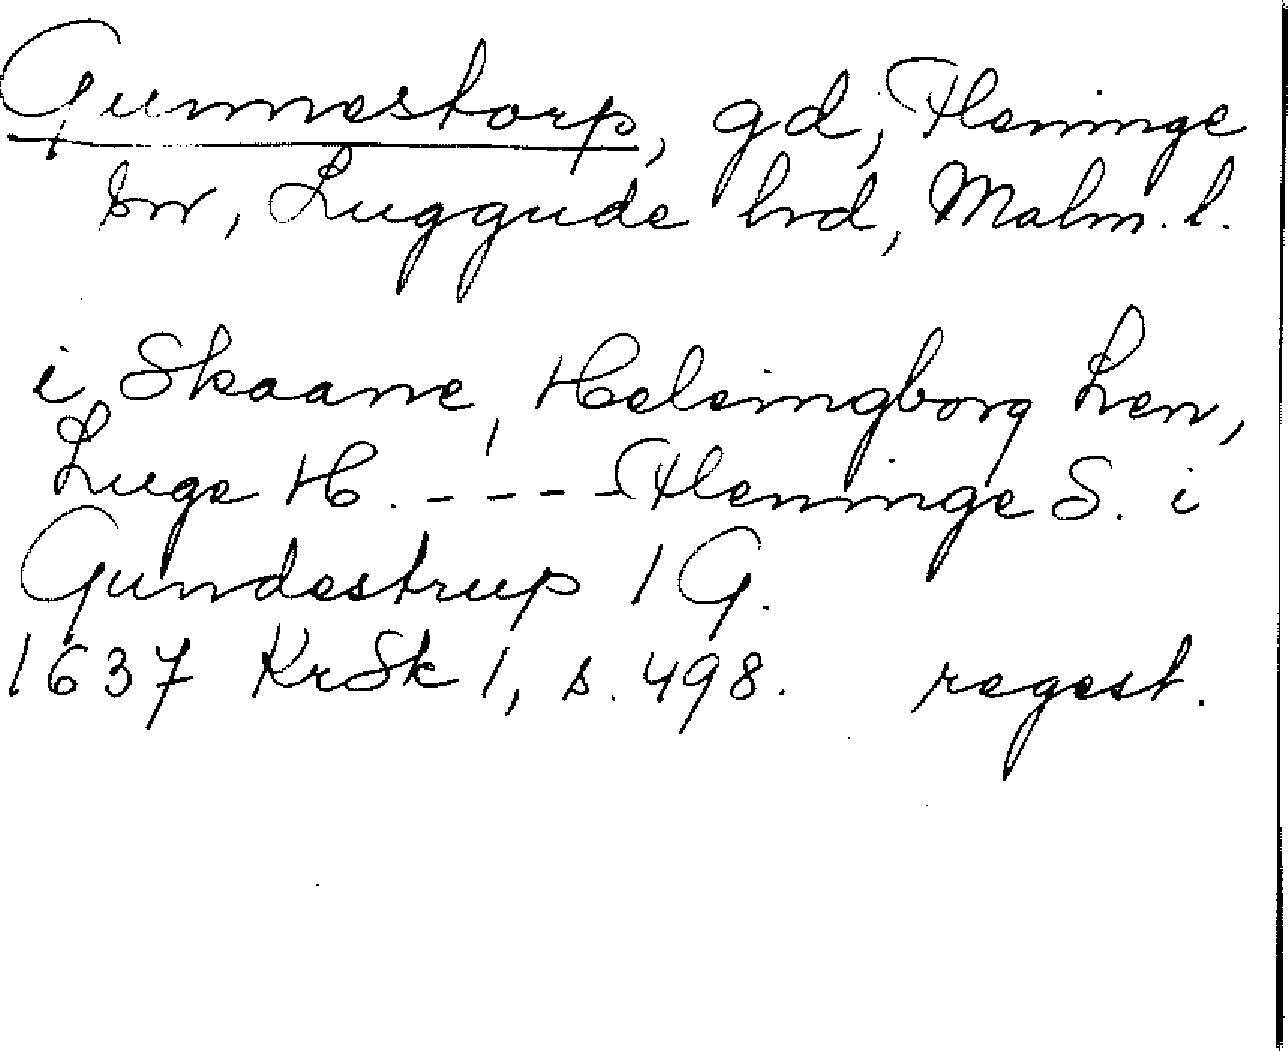 Gunnestorp, gd, Fleninge
sn, Luggude hrd, Malm. l.
i Skaane, Helsingborg Len,
Luge H. ---- Fleninge S. i
Gundestrup 1 G.
1637 KrSk 1, s. 498. regest.